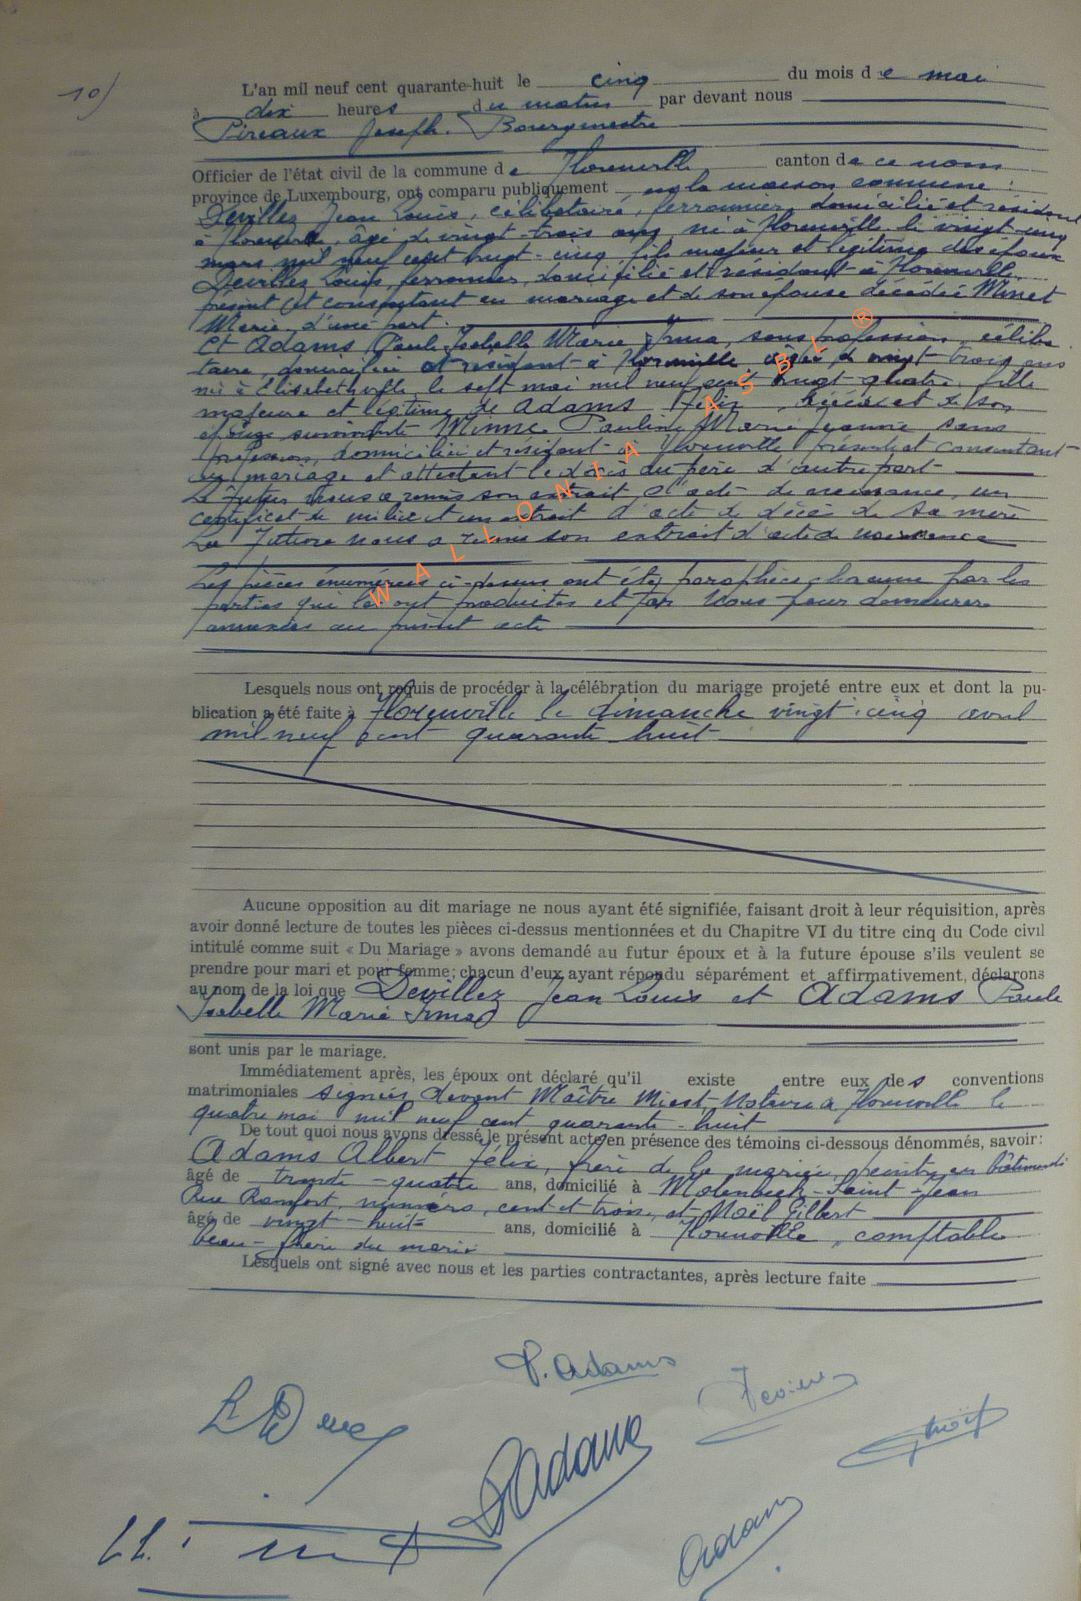 10)
L'an mil neuf cent quarante-huit le cinq du mois de mai
à dix heures du matin par devant nous
Pireaux Joseph. Bourgmestre
Officier de l'état civil de la commune de Florenville canton de ce nom
province de Luxembourg, ont comparu publiquement en la maison commune :
Devillez Jean Louis, célibataire, ferronnier, domicilié et résidant
à Florenville, âgé de vingt-trois ans, né à Florenville le vingt-cinq
mars mil neuf cent vingt-cinq fils majeur et légitime des époux
Devillez Louis, ferronnier, domicilié et résidant à Florenville,
présent et consentant au mariage et de son épouse décédée Minet
Marie, d'une part.
Et Adams Paule Isabelle Marie Irma, sans profession, céliba-
taire, domiciliée et résidant à Florenville âgée de vingt-trois ans
née à Elisabethville le sept mai mil neuf cent vingt-quatre, fille
majeure et légitime de Adams Félix, décédé et de son
épouse survivante Minne Pauline Marie Jeanne sans
profession, domiciliée et résidant à Florenville présente et consentant
au mariage et attestant le décès du père d'autre part
Le futur nous a remis son extrait d'acte de naissance, un
certificat de milice et un extrait d'acte de décès de sa mère
La future nous a remis son extrait d'acte de naissance
Les pièces énumérées ci-dessus ont été paraphées chacune par les
parties qui les ont produites et par nous pour demeurer
annexées au présent acte
Lesquels nous ont requis de procéder à la célébration du mariage projeté entre eux et dont la pu-
blication a été faite à Florenville le dimanche vingt-cinq avril
mil neuf cent quarante huit
Aucune opposition au dit mariage ne nous ayant été signifiée, faisant droit à leur réquisition, après
avoir donné lecture de toutes les pièces ci-dessus mentionnées et du Chapitre VI du titre cinq du Code civil
intitulé comme suit « Du Mariage » avons demandé au futur époux et à la future épouse s'ils veulent se
prendre pour mari et pour femme; chacun d'eux ayant répondu séparément et affirmativement, déclarons
au nom de la loi que Devillez Jean Louis et Adams Paule
Isabelle Marie Irma
sont unis par le mariage.
Immédiatement après, les époux ont déclaré qu'il existe entre eux des conventions
matrimoniales signées devant Maître Miest Notaire à Florenville le
quatre mai mil neuf cent quarante-huit
De tout quoi nous avons dressé le présent acte en présence des témoins ci-dessous dénommés, savoir:
Adams Albert Félix, frère de la mariée, peintre en bâtiments
âgé de trente-quatre ans, domicilié à Molenbeek-Saint-Jean
Rue Ransfort, numéro, cent et trois, et Noël Gilbert
âgé de vingt-huit ans, domicilié à Florenville, comptable
beau-frère du marié
Lesquels ont signé avec nous et les parties contractantes, après lecture faite
P. Adams
Adams
Adams
WALLONIA ASBL ®